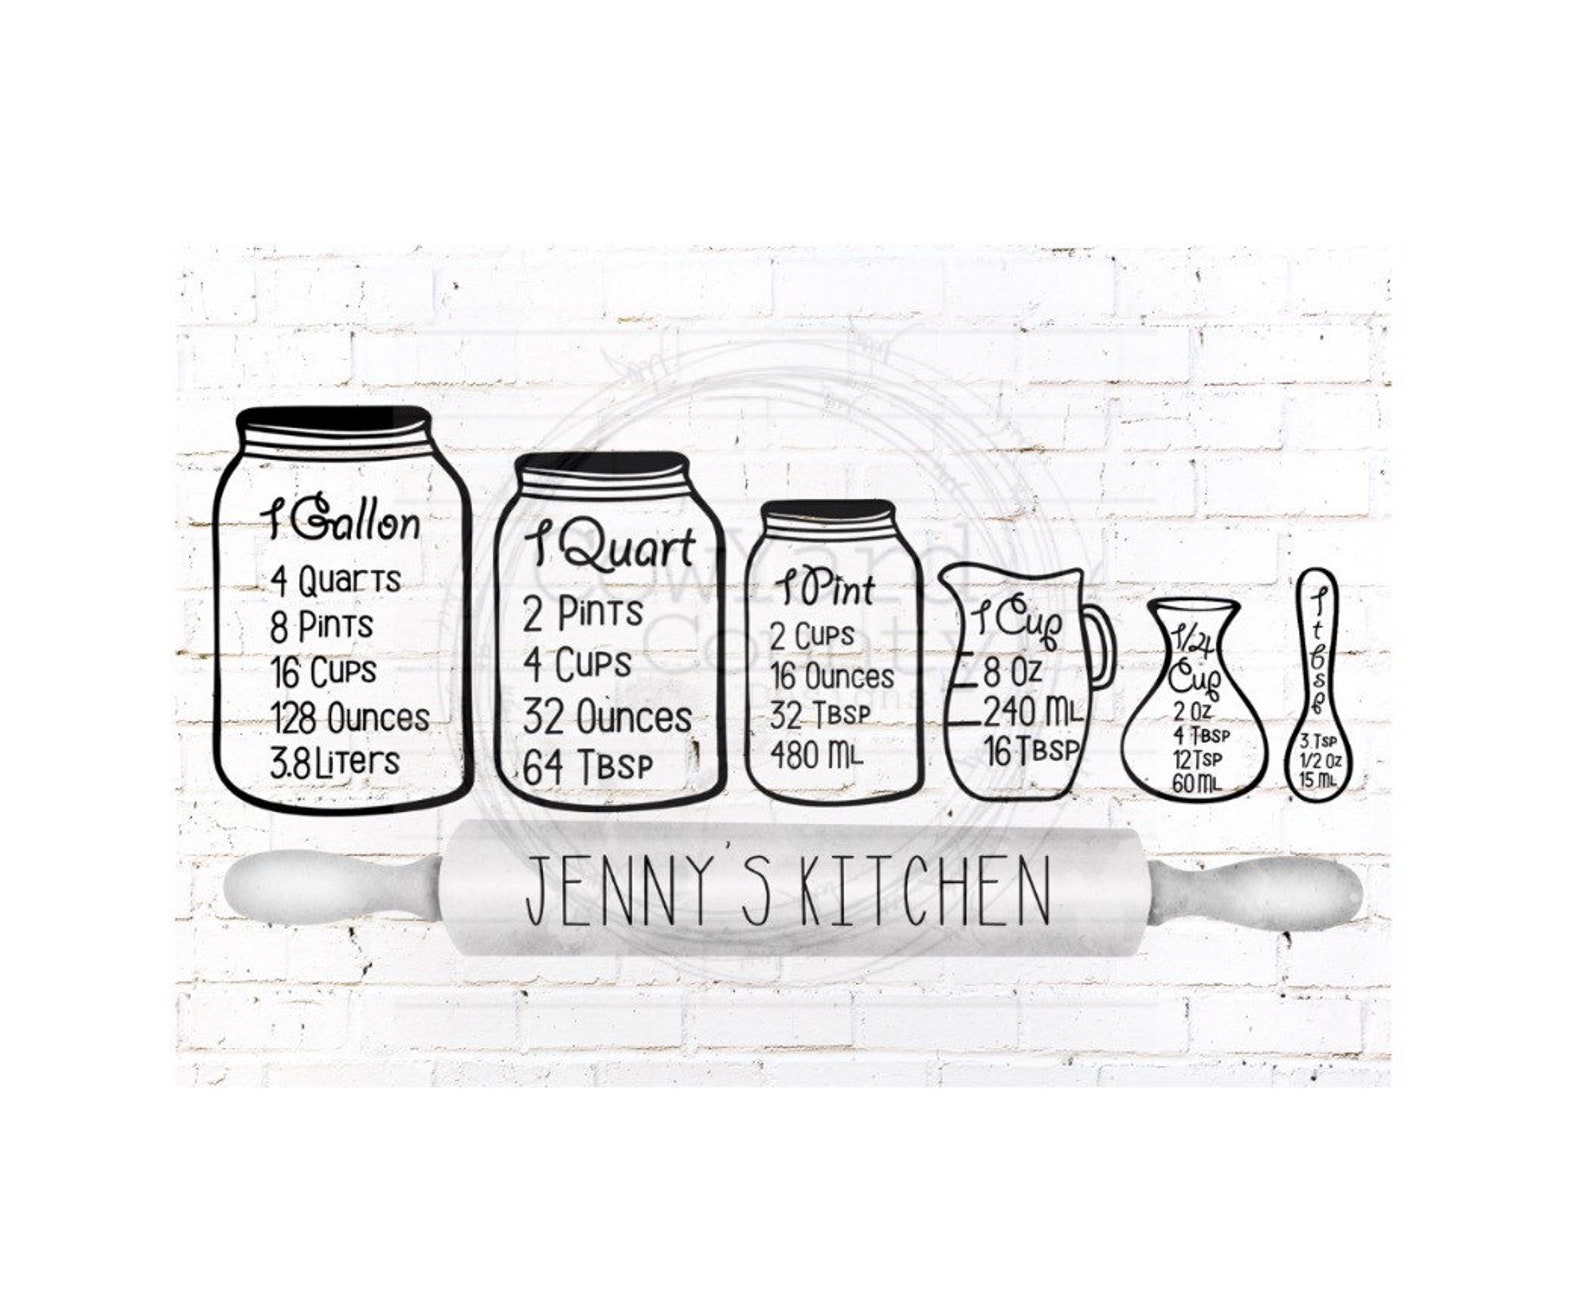 1 Gallon
4 Quarts
8 Pints
16 Cups
128 Ounces
3.8 Liters
1 Quart
2 Pints
4 Cups
32 Ounces
64 Tbsp
1 Pint
2 Cups
16 Ounces
32 Tbsp
480 mL
1 Cup
8 Oz
240 mL
16 Tbsp
1/4
Cup
2 Oz
4 Tbsp
12 Tsp
60 mL
1 tbsp
3 Tsp
1/2 Oz
15 mL
JENNY'S KITCHEN
CowYard
County
Designs